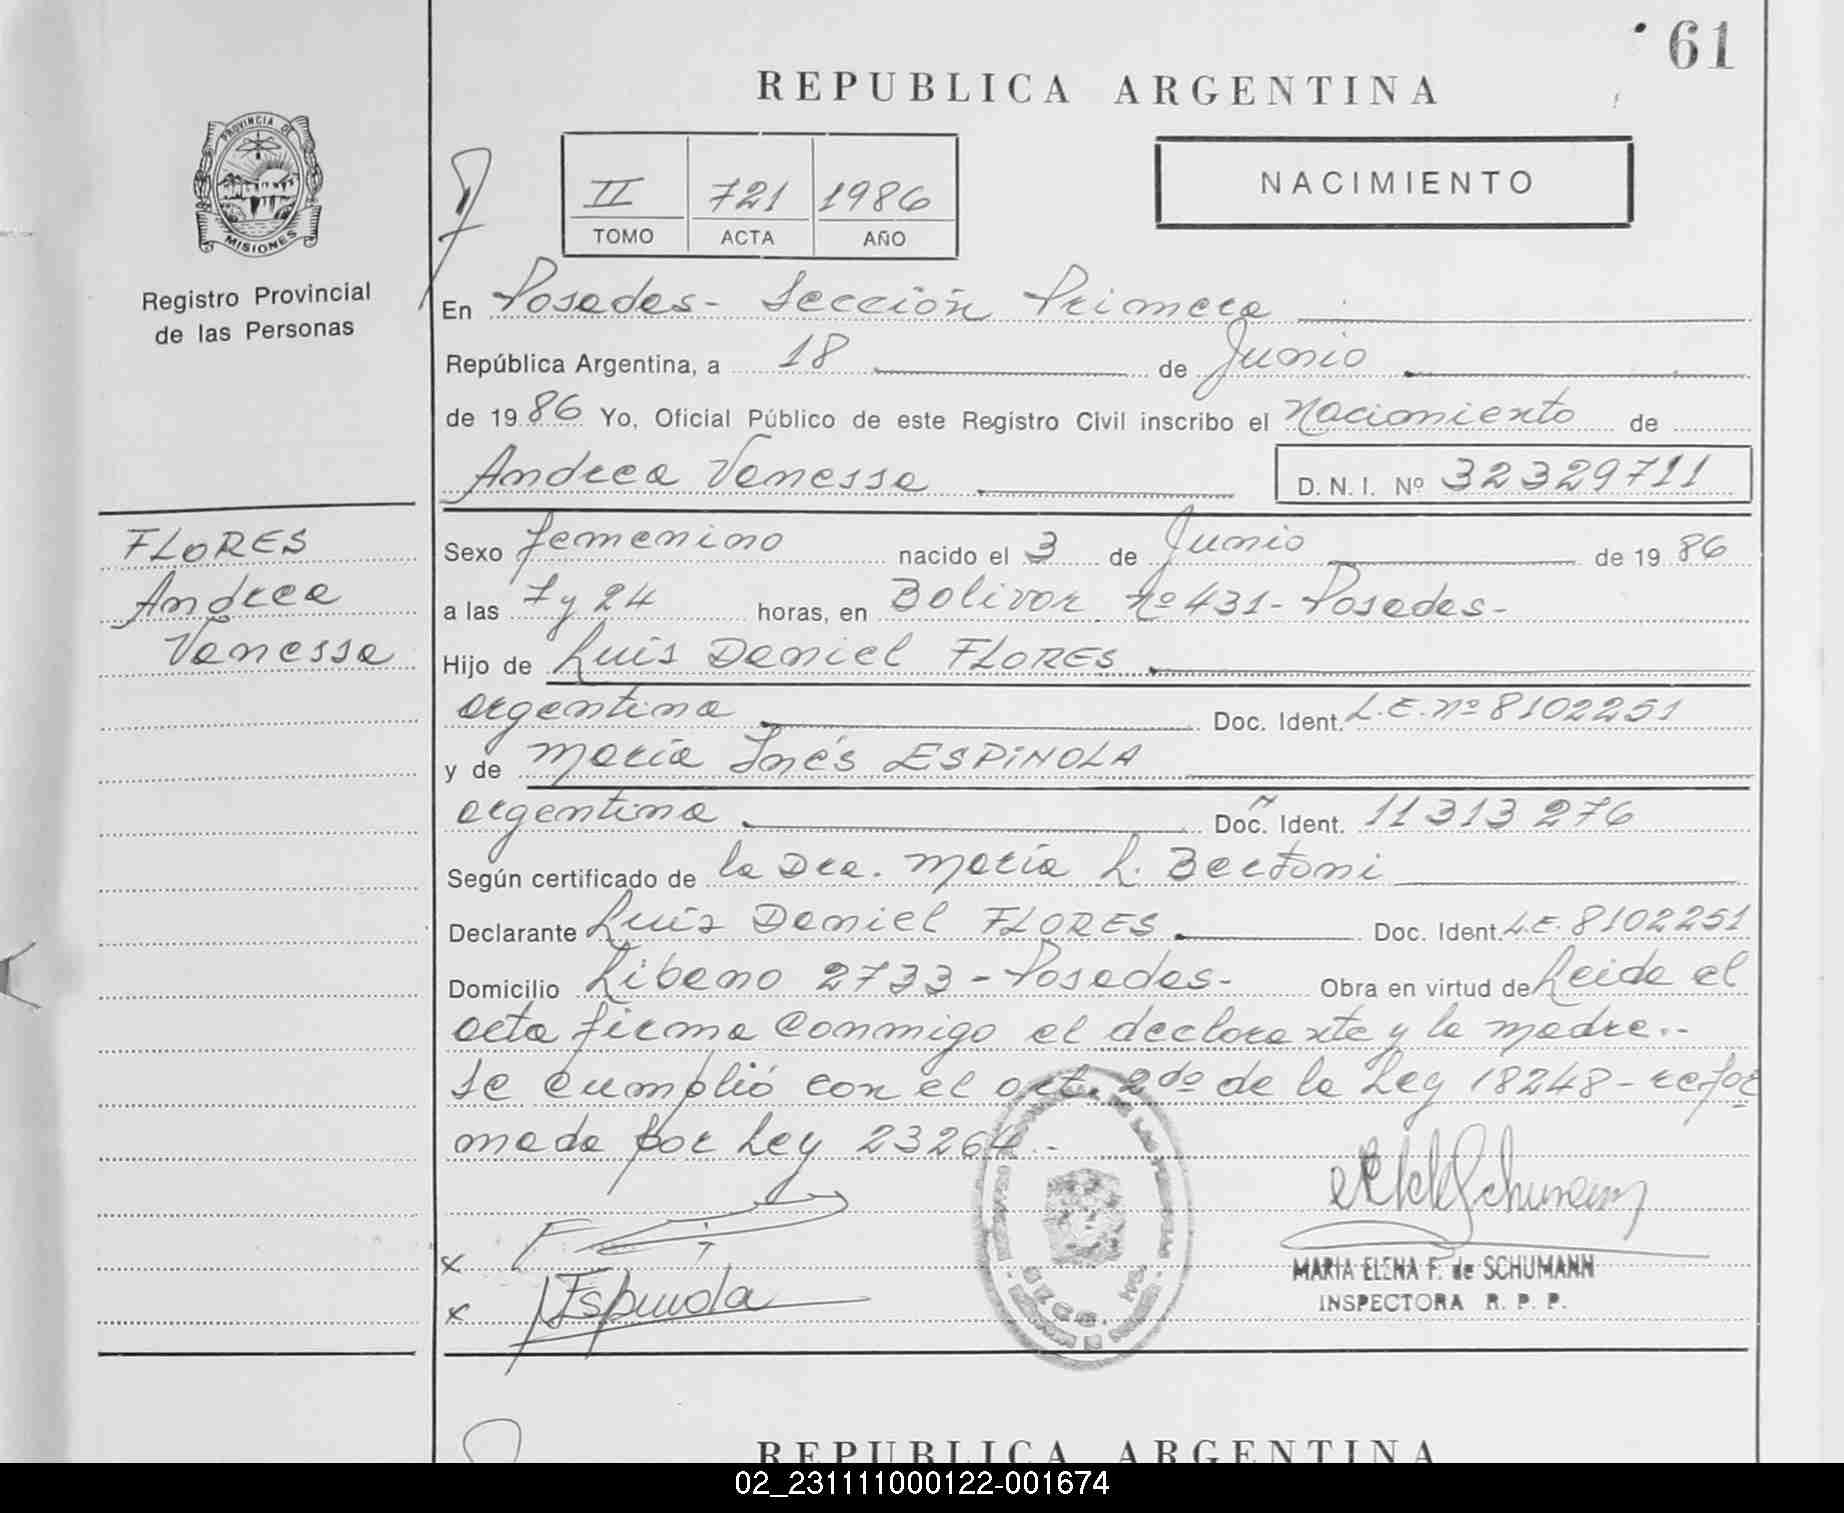 61
REPUBLICA ARGENTINA
PROVINCIA DE
MISIONES
Registro Provincial
de las Personas
II 721 1986
TOMO ACTA AÑO
NACIMIENTO
En Posadas - Sección Primera
República Argentina, a 18 de Junio
de 1986 Yo, Oficial Público de este Registro Civil inscribo el Nacimiento de
Andrea Vanessa D.N.I. Nº 32329711
FLORES
Andrea
Vanessa
Sexo femenino nacido el 3 de Junio de 1986
a las 7 y 24 horas, en Bolivar Nº 431 - Posadas -
Hijo de Luis Daniel FLORES
argentina Doc. Ident. L.E. nº 8102251
y de María Inés ESPINOLA
argentina Doc. Ident. 11313276
Según certificado de la Dra. María L. Bertoni
Declarante Luis Daniel FLORES Doc. Ident. L.E. 8102251
Domicilio Libano 2733 - Posadas - Obra en virtud de Leida el
acta firma conmigo el declarante y la madre.-
Se cumplió con el art. 2do de la Ley 18248 - refor
mada por Ley 23264.-
x
x Espinola
MARIA ELENA F. de SCHUMANN
INSPECTORA R. P. P.
REPUBLICA ARGENTINA
02_231111000122-001674